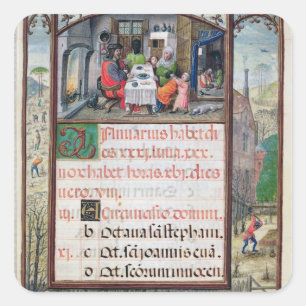 Januarius habet di
es xxxi. luna. xxx.
nox habet horas. xvi. dies
vero. viii.
iii. A Circuncisio domini.
b Octava s. stephani.
xi. c Oct. s. joannis evan.
d Oct. scorum innocen.